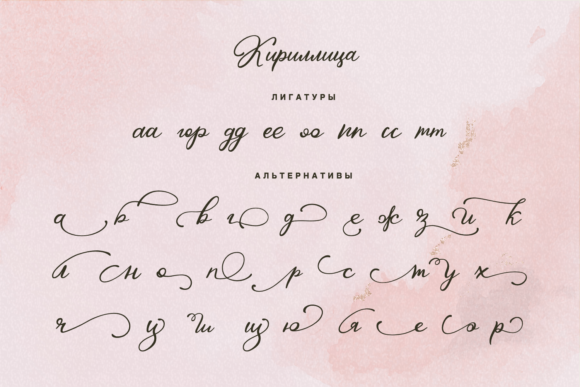 Кириллица
ЛИГАТУРЫ
аа дд ее оо пп сс тт
АЛЬТЕРНАТИВЫ
а в г д е ж з й к
л н о п р с т у х
ч ц ш щ ю я е о р